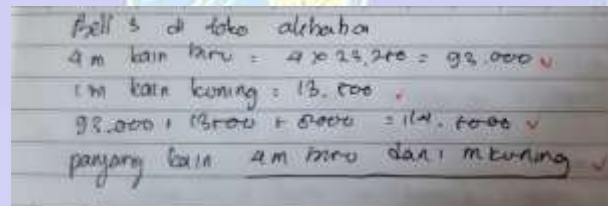 Beli 3 di toko alibaba
4 m kain biru = 4 x 23,200 = 93.000
1 m kain kuning = 13.500
93.000 + 13500 + 8000 = 114.
panjang kain 4m biru dan 1 m kuning